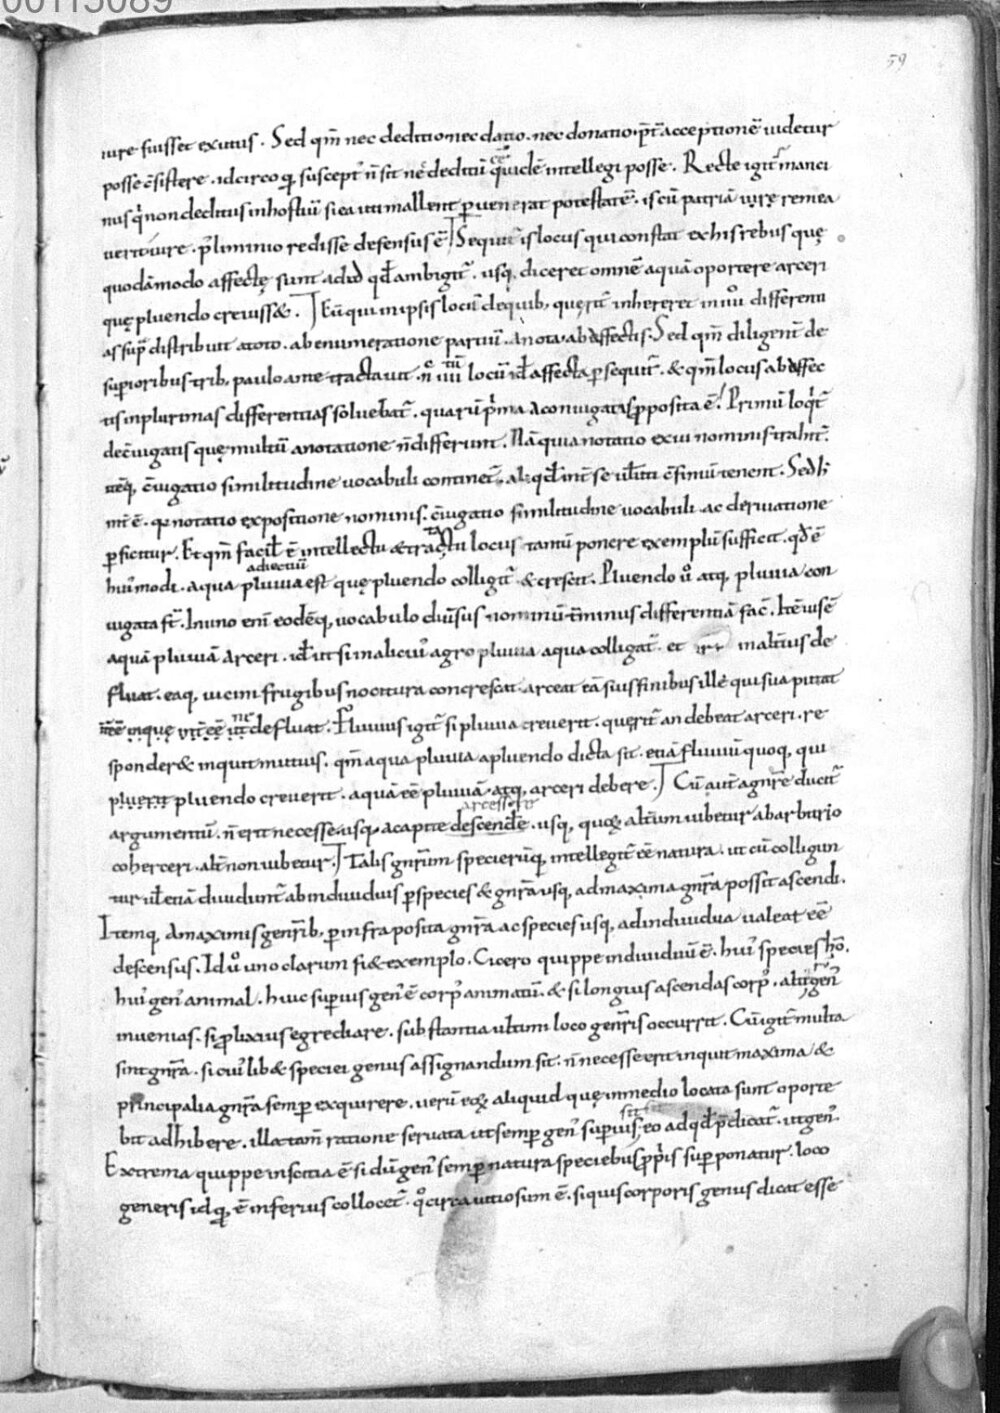 00115089
59
iure fuisset exutus. Sed qm̄ nec deditio nec datio. nec donatio. p̄t acceptionē uidetur
posse c̄sistere. idcirco q; suscept' n̄ sit nec deditū quidē intellegi posse. Recte igit̄ manci
nus q̄ non deditus in hostiū si ea uti mallent p̱uenerat potestatē. is cū patriā iurę remea
uerit iure. p̱liminio redisse defensus ē. Sequit̄ is locus qui constat ex his rebus quę
quodāmodo affectę sunt ad id qd̄ ambigit̄. usq; diceret omnē aquā oportere arceri
quę pluendo creuiss&. Eū qui in ipsis locū de quib; quęrit̄ inhereret in 
as supͣ distribuit a toto. ab enumeratione partiū. a nota. ab affectis. Sed qm̄ diligent̄ de
superioribus trib; paulo ante tractauit. locū id̄ affecta p̱sequit̄. & qm̄ locus ab affec
tis in plurimas differentias soluebat̄. quarū p̄ma a coniugatis p̱posita ē. Primū loqͥt̄
de c̄iugatis quę multū a notatione n̄ differunt. Nā quia notatio ex ui nominis trahit̄.
itēq; c̄iugatio similitudine uocabuli continet̄. aliqd̄ int̄ se uͭ c̄finiū tenent. Sed h
int̄ ē. q; notatio expositione nominis. c̄iugatio similitudine uocabuli. ac deriuatione
p̱ficitur. Et qm̄ facil' ē intellectu & tractatu locus tantū ponere exemplū sufficit. qd̄ ē
adiectiuū
hui'modi. aqua pluuia est quę pluendo colligit̄ & crescit. Pluendo u͛ atq; pluuia con
iugata st̄. In uno eni eodēq; uocabulo diu̅sus nominū t̄minus differentiā fac̄. Itē usē
aquā pluuiā arceri. id̄ ut si in alicui' agro pluuia aqua colligat̄. et in alt̄ius de
fluat. eaq; uicini frugibus nocitura concrescat. arceat eā suis finibus ille qui sua putat
int̄eē inquę ut̄ eē ut ne defluat. Fluuius igit̄ si pluuia creuerit. quęrit̄ an debeat arceri. re
sponder& inquit mutius. qm̄ aqua pluuia a pluendo dicta sit. etiā fluuiū quoq; qui
pluerit pluendo creuerit. aquā eē pluuiā. atq; arceri debere. Cū aut̄ a gn̄re ducit̄
arcessere
argumentū. n̄ erit necesse usq; a capite descendēre. usq; quoq; alt̄um iubetur ab arbitrio
coherceri. alt̄ non iubetur. Talis gn̄rūm specierūq; intellegit̄ eē natura. ut cū colligun
tur uͭ etiā diuidunt̄ ab indiuiduis p̱ species & gn̄ra usq; ad maxima gn̄ra possit ascendi.
Itemq; a maximis genērib; p̱ infra posita gn̄ra ac species usq; ad indiuidua ualeat eē
descensus. Id u͛ uno clarum fi& exemplo. Cicero quippe indiuiduū ē. hui' species hō.
hui' gen' animal. huic superius gen' ē corp' animatū. & si longius ascendas corp'. aliͭ gen'
inuenias. si plixius egrediare. substantia ultimi loco genēris occurrit. Cū igit̄ multa
sint gn̄ra. si cui' lib& speciei genus assignandum sit. n̄ necesse erit inquit maxima &
principalia gn̄ra semp̱ exquirere. uerū eoq; aliquid quę in medio locata sunt oporte
bit adhibere. illa tam̄ ratione seruata ut semp̱ gen' superius sit eo ad qd̄ p̄dicat̄. ut gen'.
Extrema quippe inscitia ē si dū gen' semp̱ natura speciebus p̱p̄is superponatur. loco
generis id q; ē inferius collocet̄. qͦcirca uitiosum ē. si quis corporis genus dicat esse